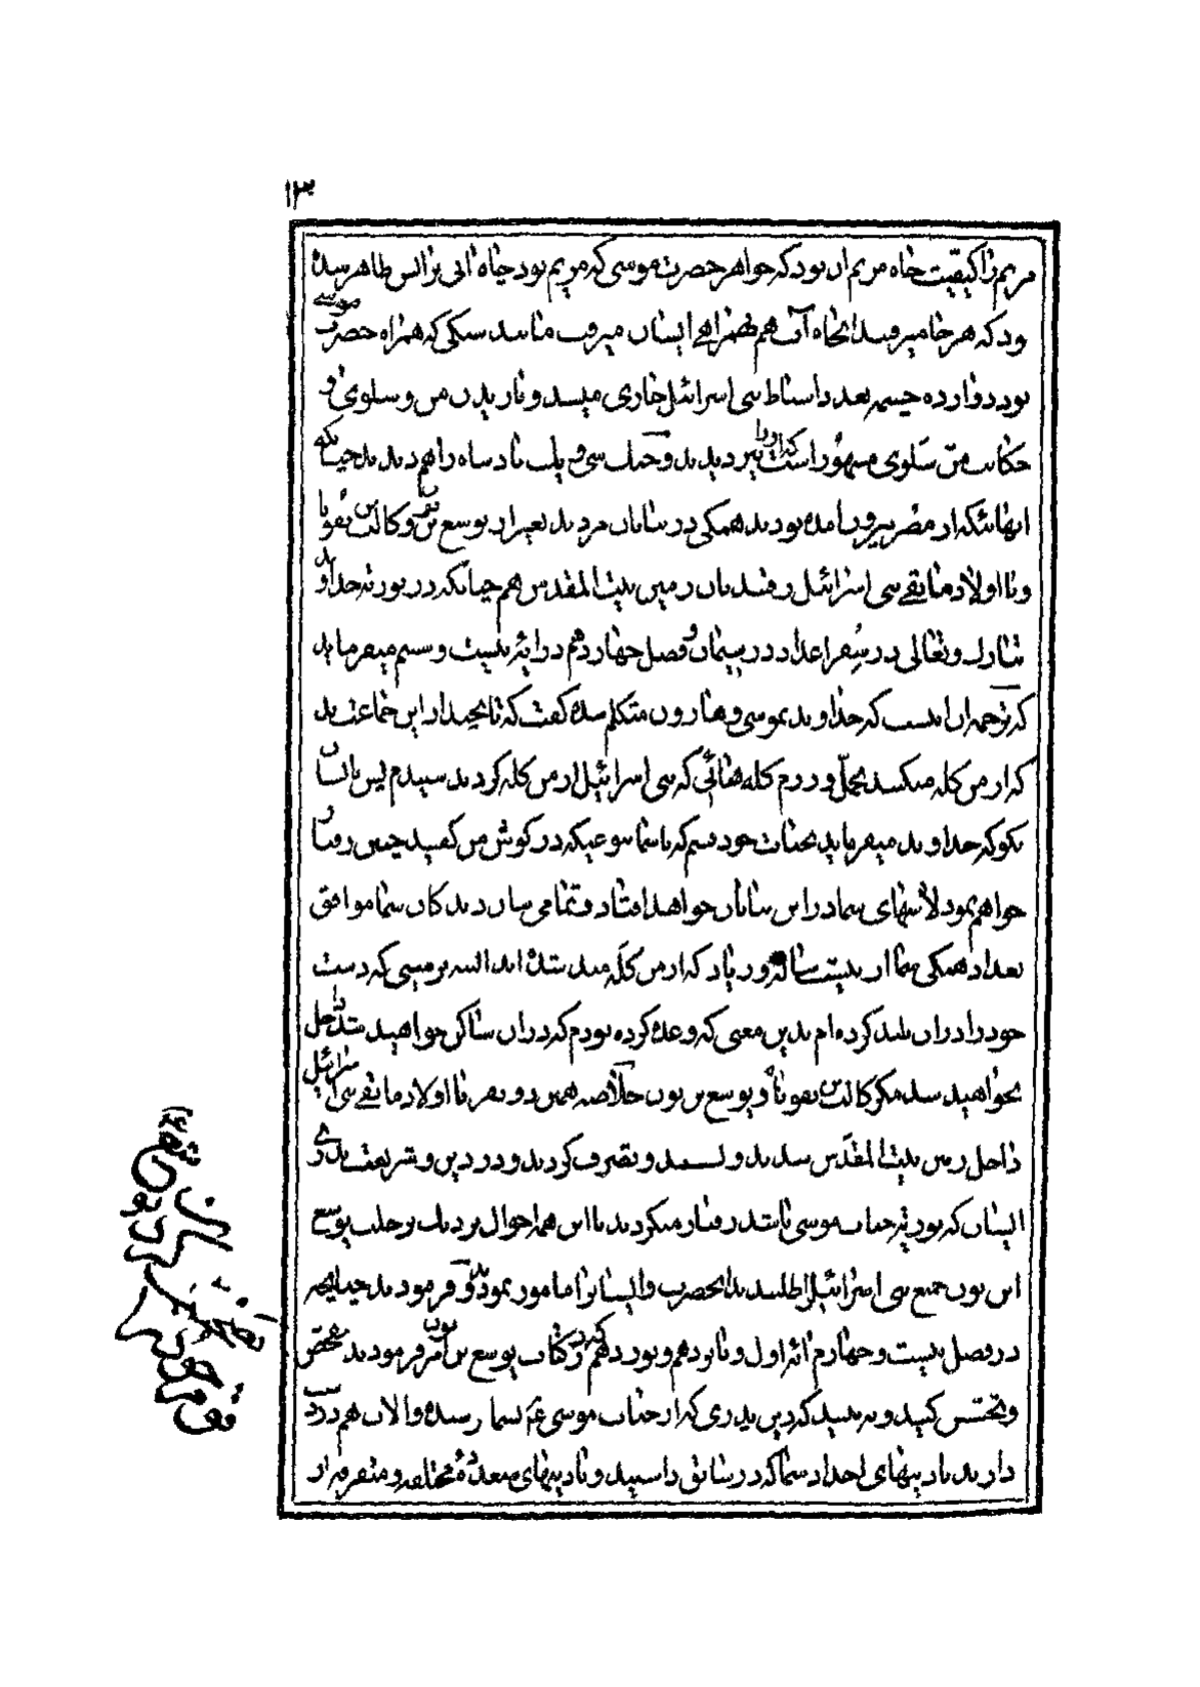 ۱۳
مریم را کیفیّت چاه مریم آن بود که خواهر حضرت موسی که مریم بود چاه آبی برای ایشان ظاهر شده
بود که هر جا میرفتند آنچاه آب هم همراه ایشان میرفت مانند سنگی که همراه حضرت موسی
بود دوازده چشمه بعدد اسباط بنی اسرائیل جاری میشد و باریدن من و سلوی و
حکایت منّ سلوی مشهور است را نیز دیدند و جنک سی و یک پادشاه را هم دیدند چنانکه
آنهائیکه از مصر بیرون آمده بودند همکی در بیابان مردند بغیر از یوشع بن نون و کالب بن یفونا
و با اولاد مابقی بنی اسرائیل رفتند بان زمین بیت المقدس هم چنانکه در توریة خداوند
تبارک و تعالی در سفر اعداد در پیمان و فصل چهاردهم در آیهٔ بیست و ششم میفرماید
که ترجمه اش اینست که خداوند بموسی و هارون متکلم شده کفت که تا بچند از این جماعت بد
که از من کله میکنند تحمّل ورزم کله هائی که بنی اسرائیل از من کله کردند شنیدم پس بایشان
بکو که خداوند میفرماید بحیات خود قسم که با شما نوعیکه در کوش من کفتید چنین رفتار
خواهم نمود لاشهای شما در این بیابان خواهد افتاد و تمامی شان ردید کان شما موافق
تعداد همکی شما از بیست ساله و زیاد که از من کله مند شده اند البته بزمینی که دست
خود را در آن بلند کرده ام بدین معنی که وعده کرده بودم که در آن ساکن خواهید شد داخل
نخواهید شد مکر کالب بن یفونا و یوشع بن نون خلاصه همین دو نفر با اولاد مابقی بنی اسرائیل
داخل زمین بیت المقدّس شدند و تصرف کردند و در دین و شریعت پدری
ایشان که توریة جناب موسی باشد رفتار میکردند با این همه احوال نزدیک برحلت یوشع
ابن نون جمیع بنی اسرائیل را طلبیدند آنحضرت و ایشانرا مامور نمود و فرمودند چنانچه
در فصل بیست و چهارم آیه اول و پانزدهم و نوزدهم کتاب یوشع بن نون فرمودند تفحّص
و تجسّس کنید و به بینید که دین پدری که از جناب موسی ع بشما رسیده و الان هم در دست
دارید یا دینهای اجداد شما که در سابق داشتید و یا دینهای متعددهٔ مختلفه و متفرقه از